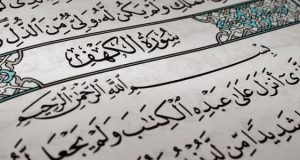 وَلَمْ يَكُن لَّهُ وَلِيٌّ مِّنَ الذُّلِّ
سُورَةُ الكَهْفِ
بِسْمِ اللَّهِ الرَّحْمَٰنِ الرَّحِيمِ
أَنزَلَ عَلَىٰ عَبْدِهِ الْكِتَٰبَ وَلَمْ يَجْعَل
شَدِيدًا مِّن